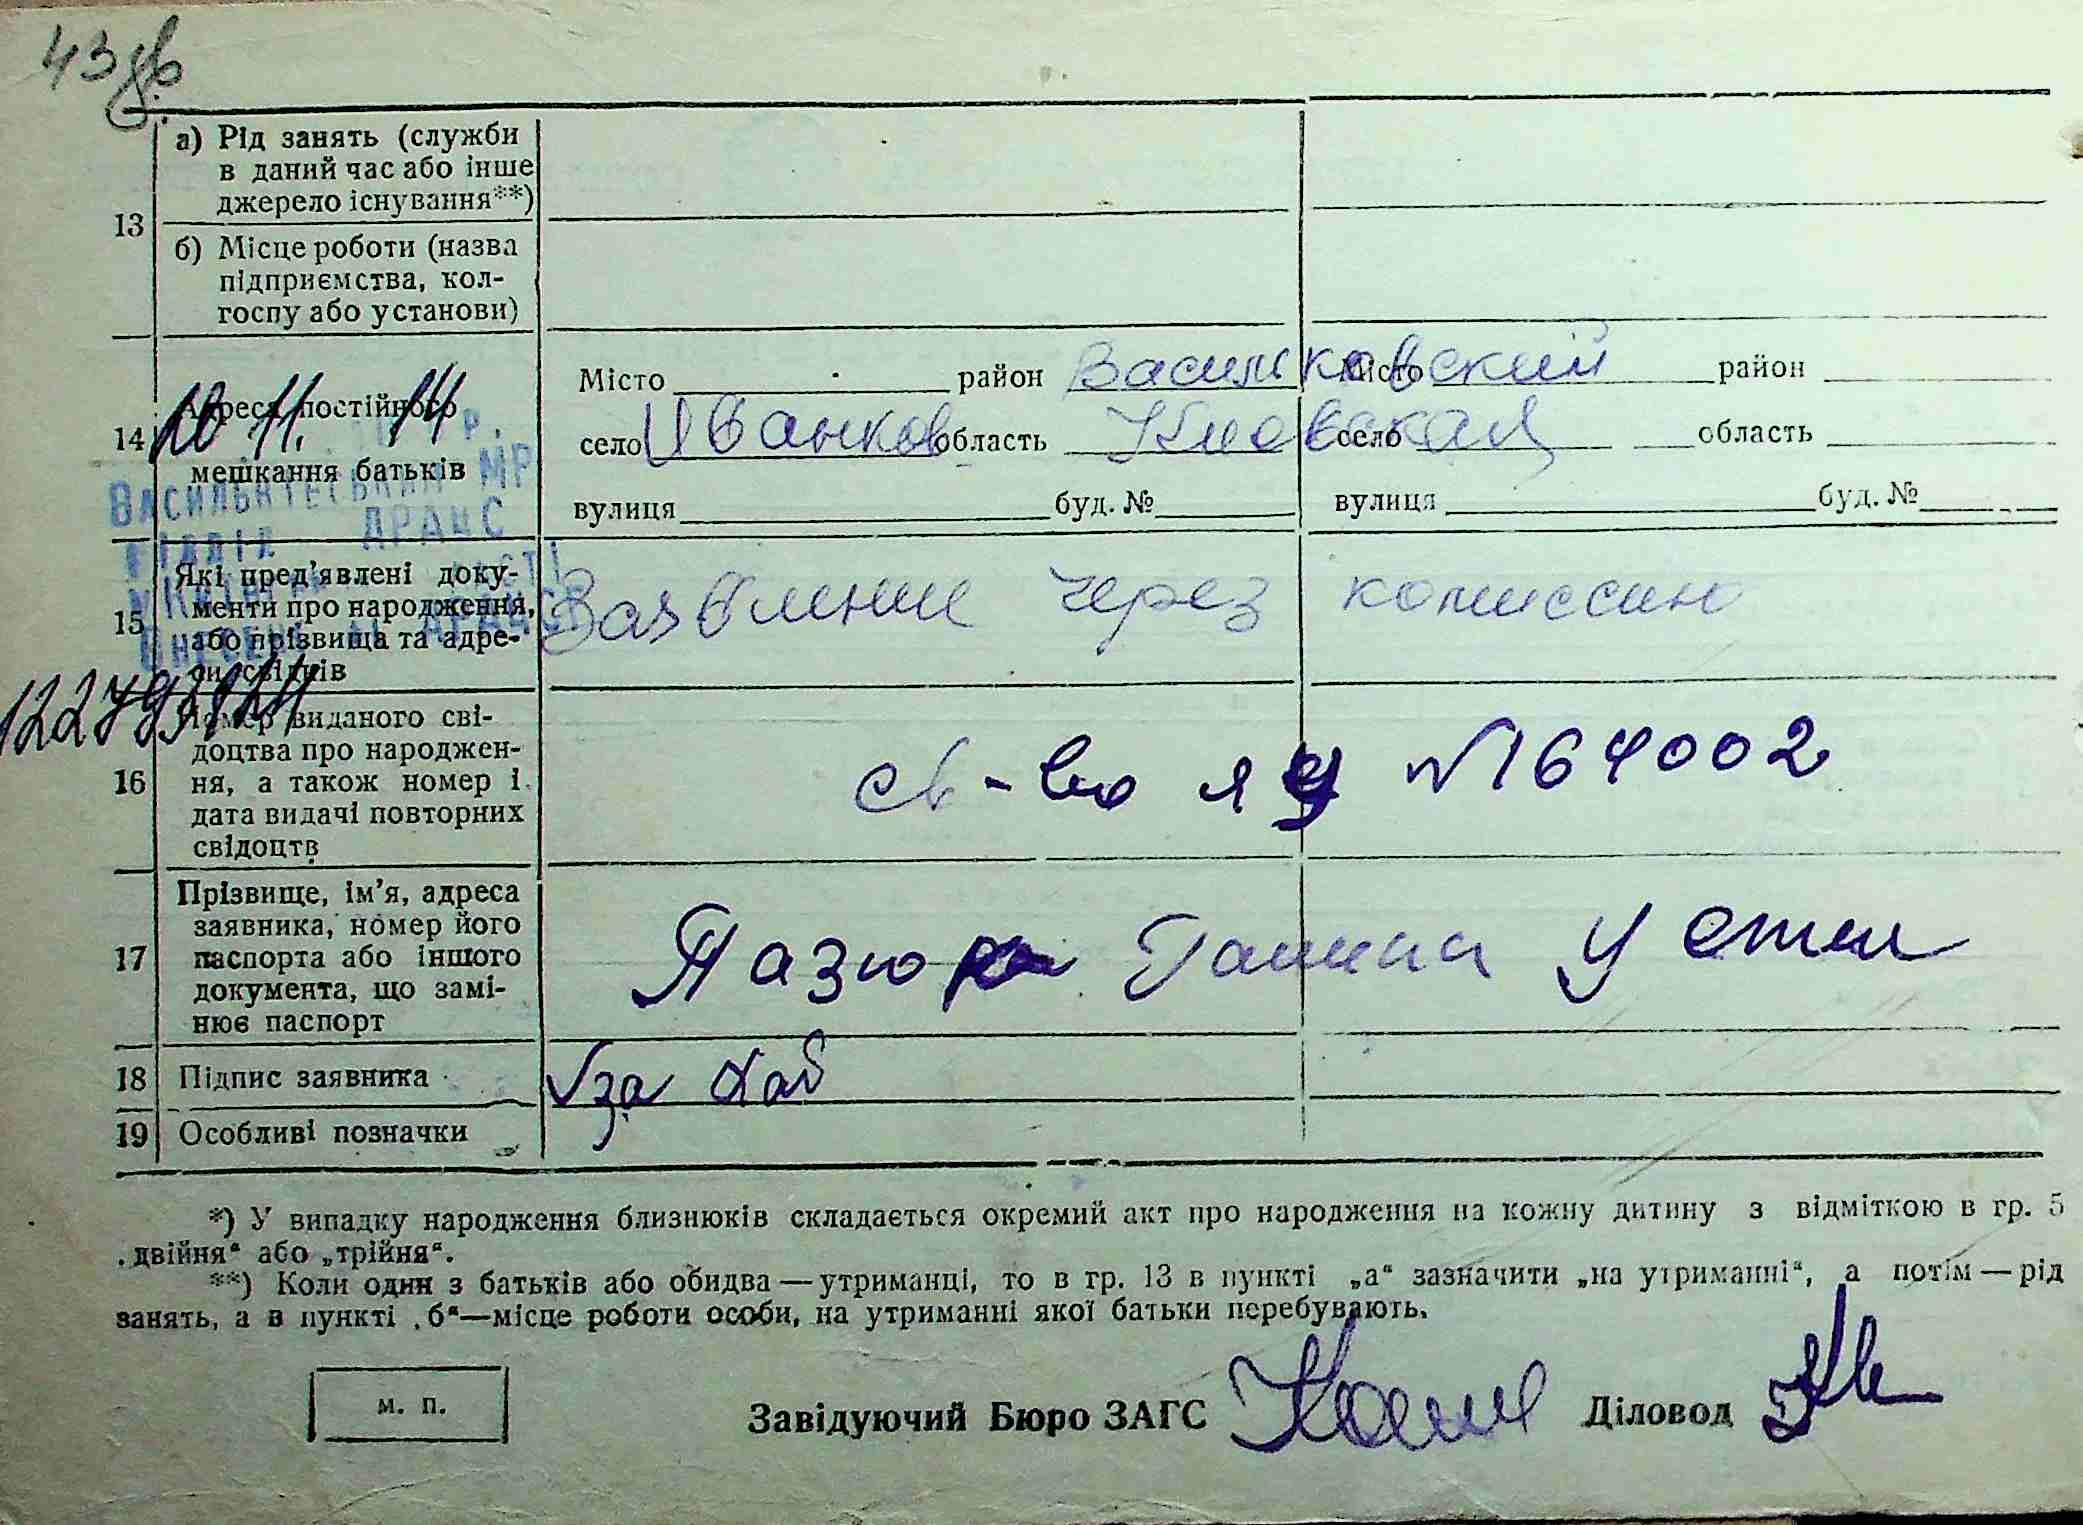 43
13
а) Рід занять (служби
в даний час або інше
джерело існування**)
б) Місце роботи (назва
підприємства, кол-
госпу або установи)
14
Адреса постійного
мешкання батьків
10 11. 14 р.
Місто район Васильковский
село Иванков область Киевская
вулиця буд. №
Місто район
село область
вулиця буд. №
ВАСИЛЬКІВСЬКИЙ МР
ВІДДІЛ ДРАЦС
15
Які пред'явлені доку-
менти про народження,
або прізвища та адре-
си свідків
Заявление через комиссию
16
Номер виданого сві-
доцтва про народжен-
ня, а також номер і
дата видачі повторних
свідоцтв
св-во я № 164002
17
Прізвище, ім'я, адреса
заявника, номер його
паспорта або іншого
документа, що замі-
нює паспорт
Галина Устин
18
Підпис заявника
за
19
Особливі позначки
*) У випадку народження близнюків складається окремий акт про народження на кожну дитину з відміткою в гр. 5
„двійня“ або „трійня“.
**) Коли один з батьків або обидва — утриманці, то в гр. 13 в пункті „а“ зазначити „на утриманні“, а потім — рід
занять, а в пункті „б“—місце роботи особи, на утриманні якої батьки перебувають.
м. п.
Завідуючий Бюро ЗАГС
Діловод